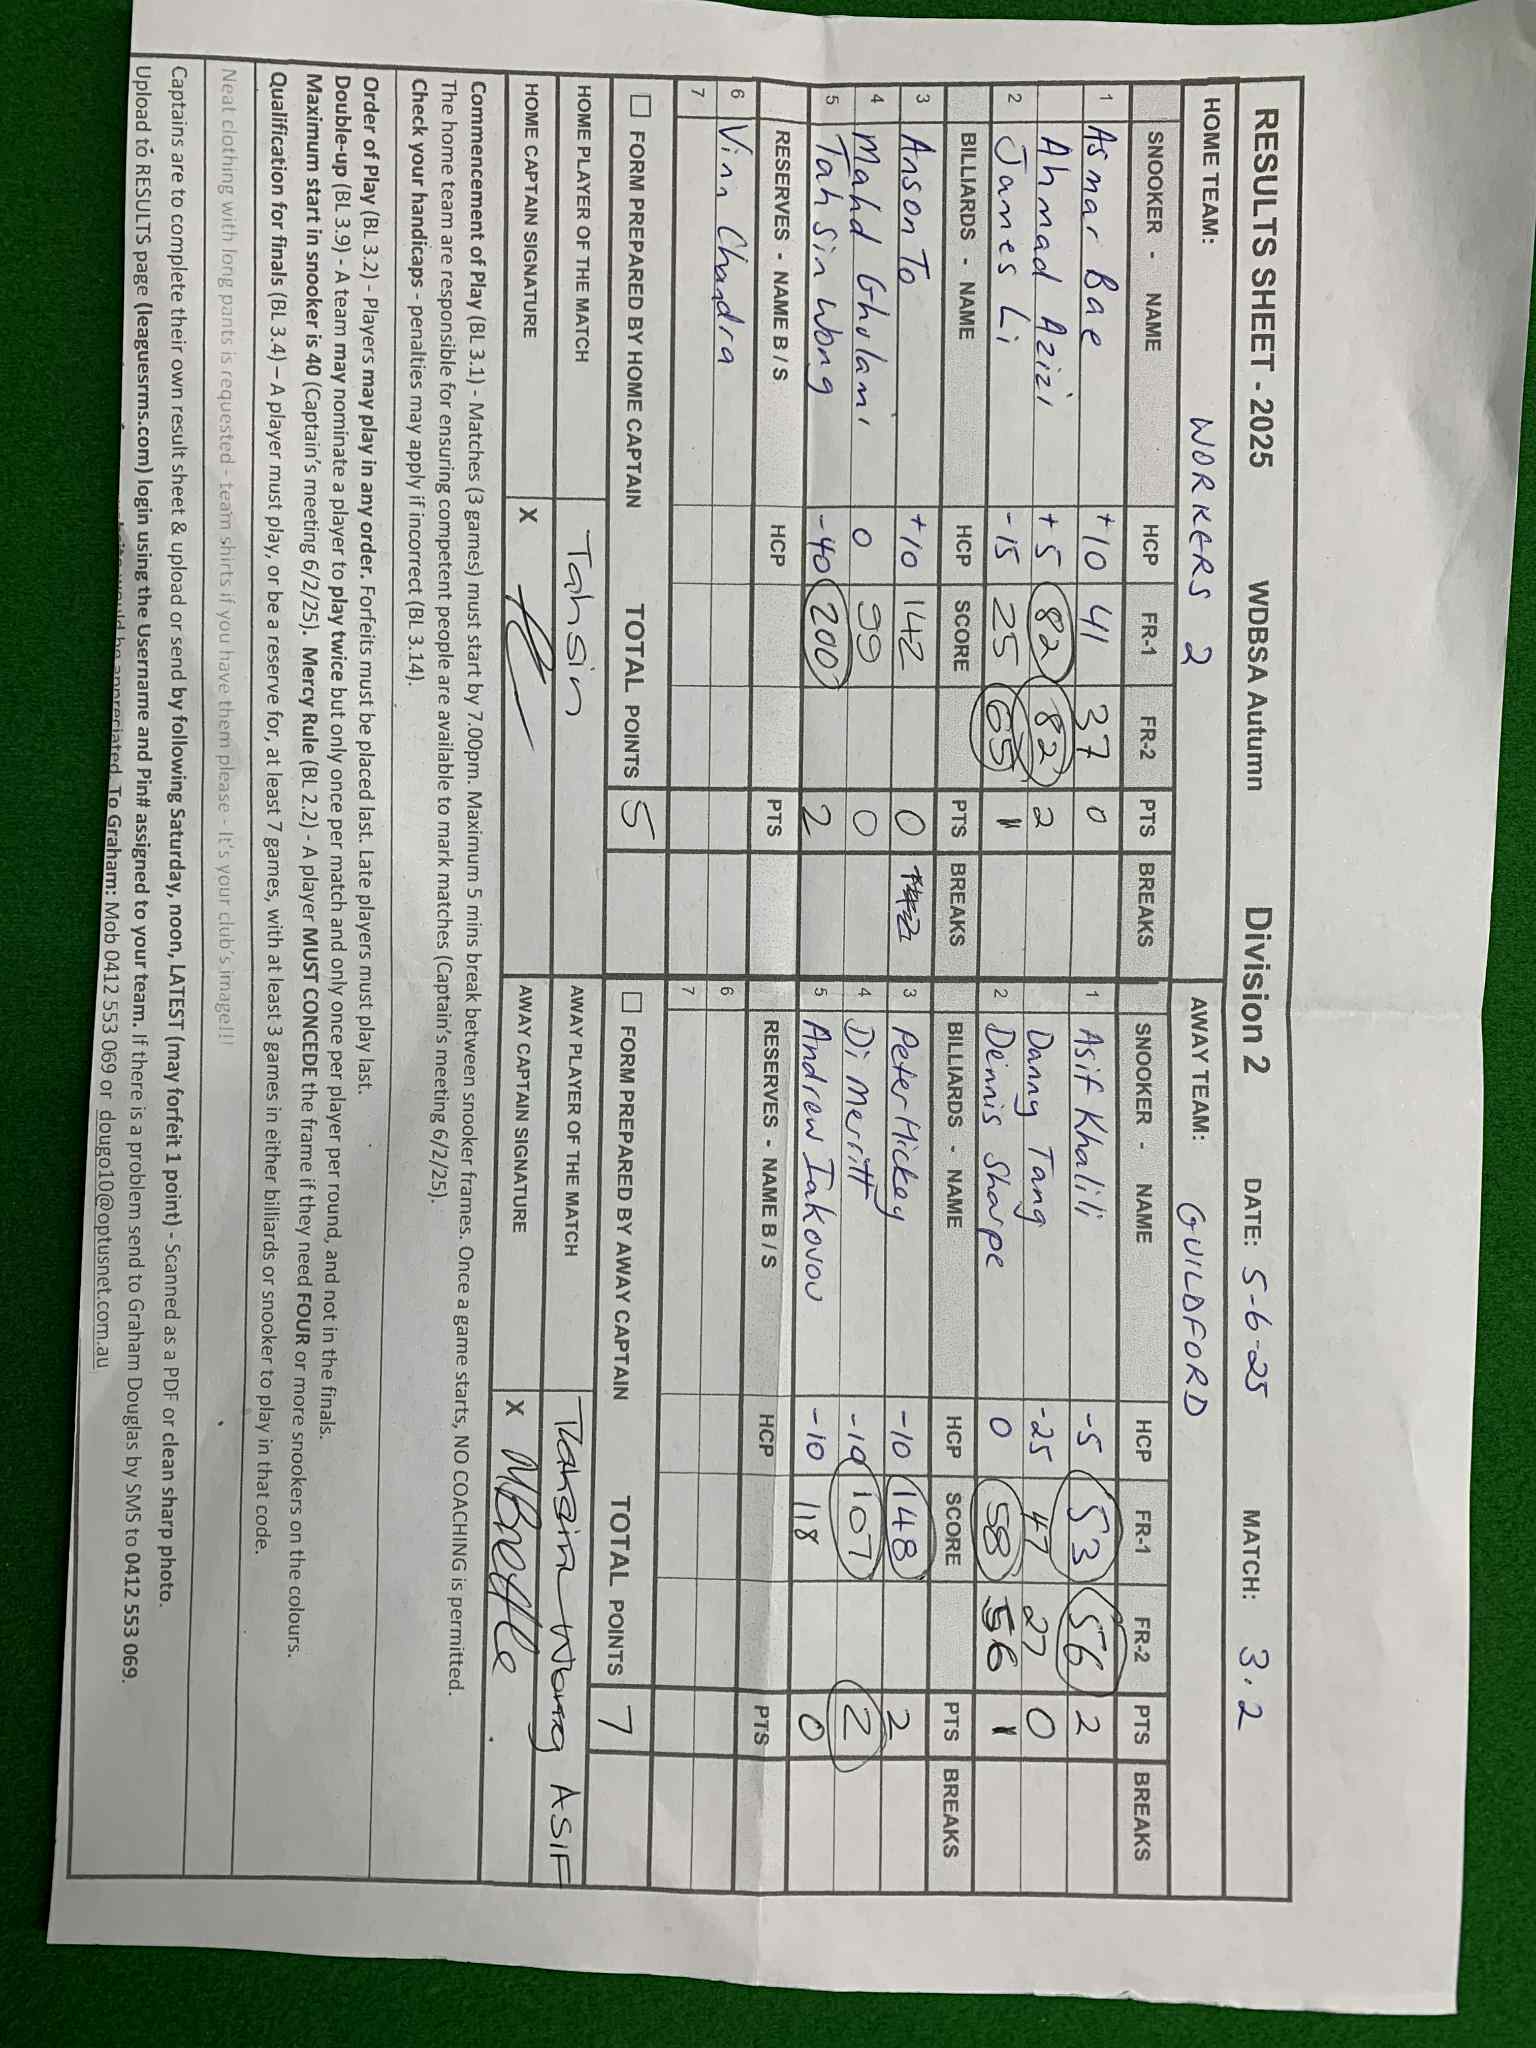 RESULTS SHEET - 2025 WDBSA Autumn Division 2 DATE: 5-6-25 MATCH: 3.2
HOME TEAM: WORKERS 2 AWAY TEAM: GUILDFORD
SNOOKER - NAME HCP FR-1 FR-2 PTS BREAKS SNOOKER - NAME HCP FR-1 FR-2 PTS BREAKS
1 Asmar Bae +10 41 37 0 1 Asif Khalili -5 53 56 2
Ahmad Azizi +5 82 82 2 Danny Tang -25 47 27 0
2 James Li -15 25 65 1 2 Dennis Sharpe 0 58 56 1
BILLIARDS - NAME HCP SCORE PTS BREAKS BILLIARDS - NAME HCP SCORE PTS BREAKS
3 Anson To +10 142 0 3 Peter Hickey -10 148 2
4 Mahd Gholami 0 99 0 4 Di Meritt -10 107 2
5 Tahsin Wong -40 200 2 5 Andrew Iakovou -10 118 0
RESERVES - NAME B / S HCP PTS RESERVES - NAME B / S HCP PTS
6 Vinn Chandra 6
7 7
FORM PREPARED BY HOME CAPTAIN TOTAL POINTS 5 FORM PREPARED BY AWAY CAPTAIN TOTAL POINTS 7
HOME PLAYER OF THE MATCH Tahsin AWAY PLAYER OF THE MATCH Tahsin Wong ASIF
HOME CAPTAIN SIGNATURE X AWAY CAPTAIN SIGNATURE X
Commencement of Play (BL 3.1) - Matches (3 games) must start by 7.00pm. Maximum 5 mins break between snooker frames. Once a game starts, NO COACHING is permitted.
The home team are responsible for ensuring competent people are available to mark matches (Captain's meeting 6/2/25).
Check your handicaps - penalties may apply if incorrect (BL 3.14).
Order of Play (BL 3.2) - Players may play in any order. Forfeits must be placed last. Late players must play last.
Double-up (BL 3.9) - A team may nominate a player to play twice but only once per match and only once per player per round, and not in the finals.
Maximum start in snooker is 40 (Captain's meeting 6/2/25). Mercy Rule (BL 2.2) - A player MUST CONCEDE the frame if they need FOUR or more snookers on the colours.
Qualification for finals (BL 3.4) – A player must play, or be a reserve for, at least 7 games, with at least 3 games in either billiards or snooker to play in that code.
Neat clothing with long pants is requested - team shirts if you have them please - It's your club's image!!!
Captains are to complete their own result sheet & upload or send by following Saturday, noon, LATEST (may forfeit 1 point) - Scanned as a PDF or clean sharp photo.
Upload to RESULTS page (leaguesrms.com) login using the Username and Pin# assigned to your team. If there is a problem send to Graham Douglas by SMS to 0412 553 069.
would be appreciated. To Graham: Mob 0412 553 069 or dougo10@optusnet.com.au